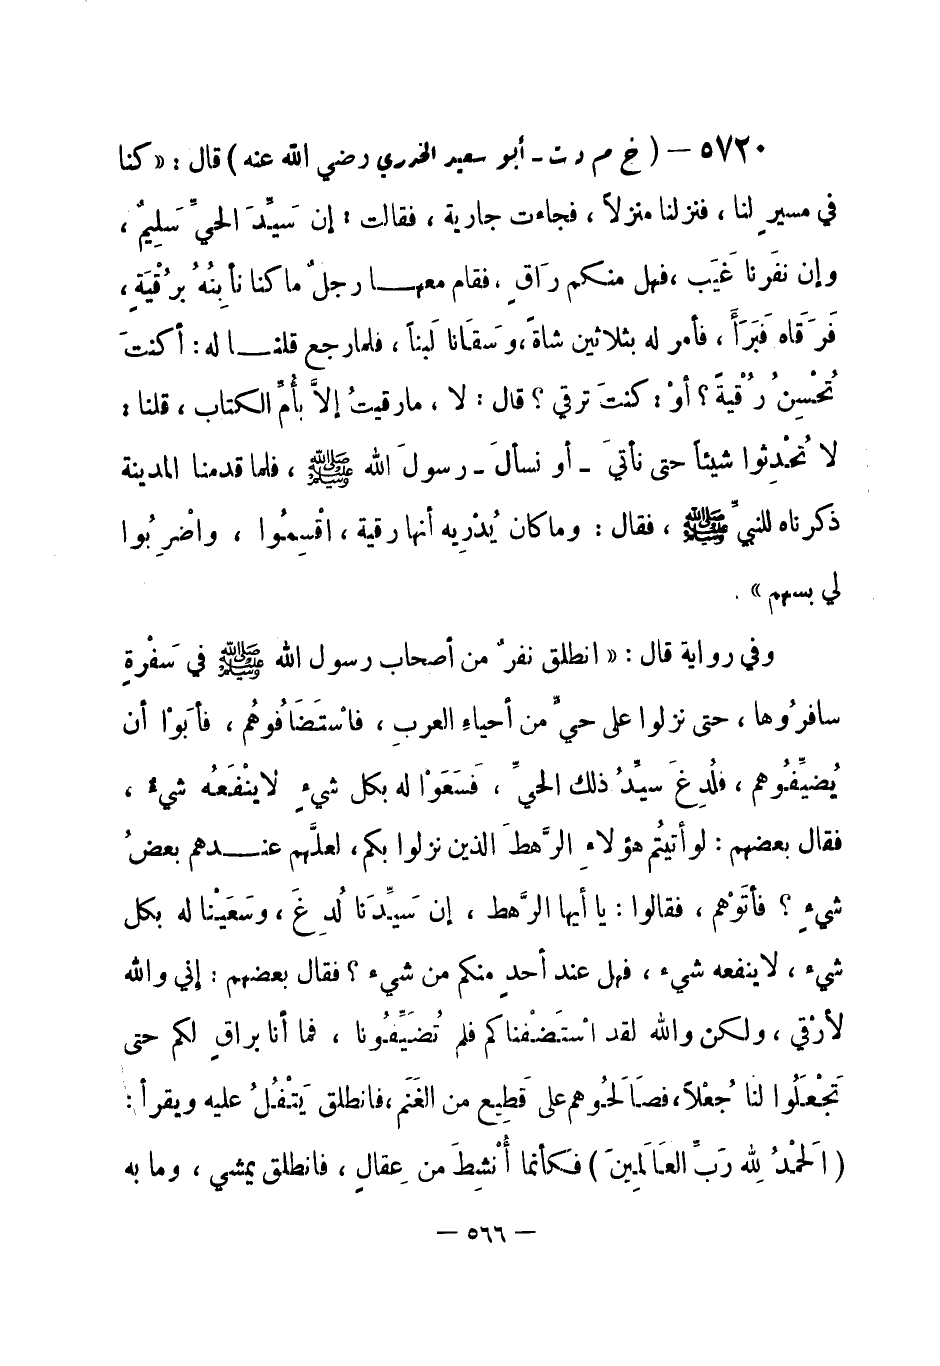 ٥٧٢٠ – ( خ م د ت – أبو سعيد الخدري رضي الله عنه ) قال : « كنا
في مسيرٍ لنا ، فنزلنا منزلاً ، فجاءت جارية ، فقالت : إن سَيِّدَ الحيِّ سَلِيمٌ ،
وإن نفَرنا غَيَب ، فهل منكم رَاقٍ ، فقام معهــا رجلٌ ما كنا نأْبِنُهُ بِرُقْيَةٍ ،
فَرَقَاه فَبَرَأَ ، فأمر له بثلاثين شاةً ، وَسقَانا لَبناً ، فلما رجع قلنــا له : أكنتَ
تُحْسِنُ رُقْيةً ؟ أوْ : كنتَ ترقي ؟ قال : لا ، مارقيتُ إلاَّ بأُمِّ الكتاب ، قلنا :
لا تُحْدِثوا شيئاً حتى نأتيَ – أو نسألَ – رسولَ الله ﷺ ، فلما قدمنا المدينة
ذكرناه للنبيِّ ﷺ ، فقال : وماكان يُدْرِيه أنها رقية ، اقْسِمُوا ، واضْرِبُوا
لي بسهم » .
وفي رواية قال : « انطلق نفرٌ من أصحاب رسول الله ﷺ في سَفْرةٍ
سافرُوها ، حتى نزلوا على حيٍّ من أحياءِ العربِ ، فاسْتَضَافُوهُم ، فأبَوْا أن
يُضيِّفُوهم ، فلُدِغَ سيِّدُ ذلك الحيِّ ، فَسَعَوْا له بكل شيءٍ لاينْفَعُه شيءٌ ،
فقال بعضهم : لو أتيتُم هؤلاءِ الرَّهطَ الذين نزلوا بكم ، لعلَّهم عنــدهم بعضُ
شيءٍ ؟ فأتَوْهم ، فقالوا : يا أيها الرَّهط ، إن سَيِّدَنا لُدِغَ ، وسَعَيْنا له بكل
شيء ، لاينفعه شيء ، فهل عند أحدٍ منكم من شيء ؟ فقال بعضهم : إني والله
لأرْقي ، ولكن والله لقد اسْتَضَفْناكم فلم تُضَيِّفُونا ، فما أنا براقٍ لكم حتى
تَجْعَلُوا لنا جُعْلاً ، فصَالَحُوهم على قَطِيع من الغَنَم ، فانطلق يَتْفُلُ عليه ويقرأ :
( الحَمْدُ لِله رَبِّ العَالَمِينَ ) فكأنما أُنْشِطَ من عِقالٍ ، فانطلق يمشي ، وما به
– ٥٦٦ –